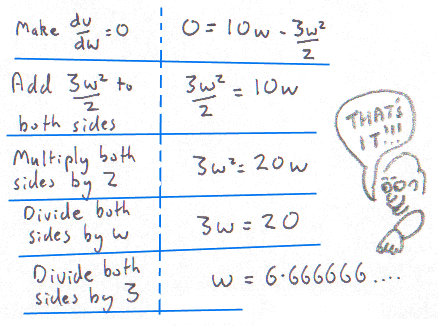 Make dv/dw = 0
0 = 10w - 3w²/2
Add 3w²/2 to
both sides
3w²/2 = 10w
Multiply both
sides by 2
3w² = 20w
Divide both
sides by w
3w = 20
Divide both
sides by 3
w = 6.666666....
THAT'S
IT!!!